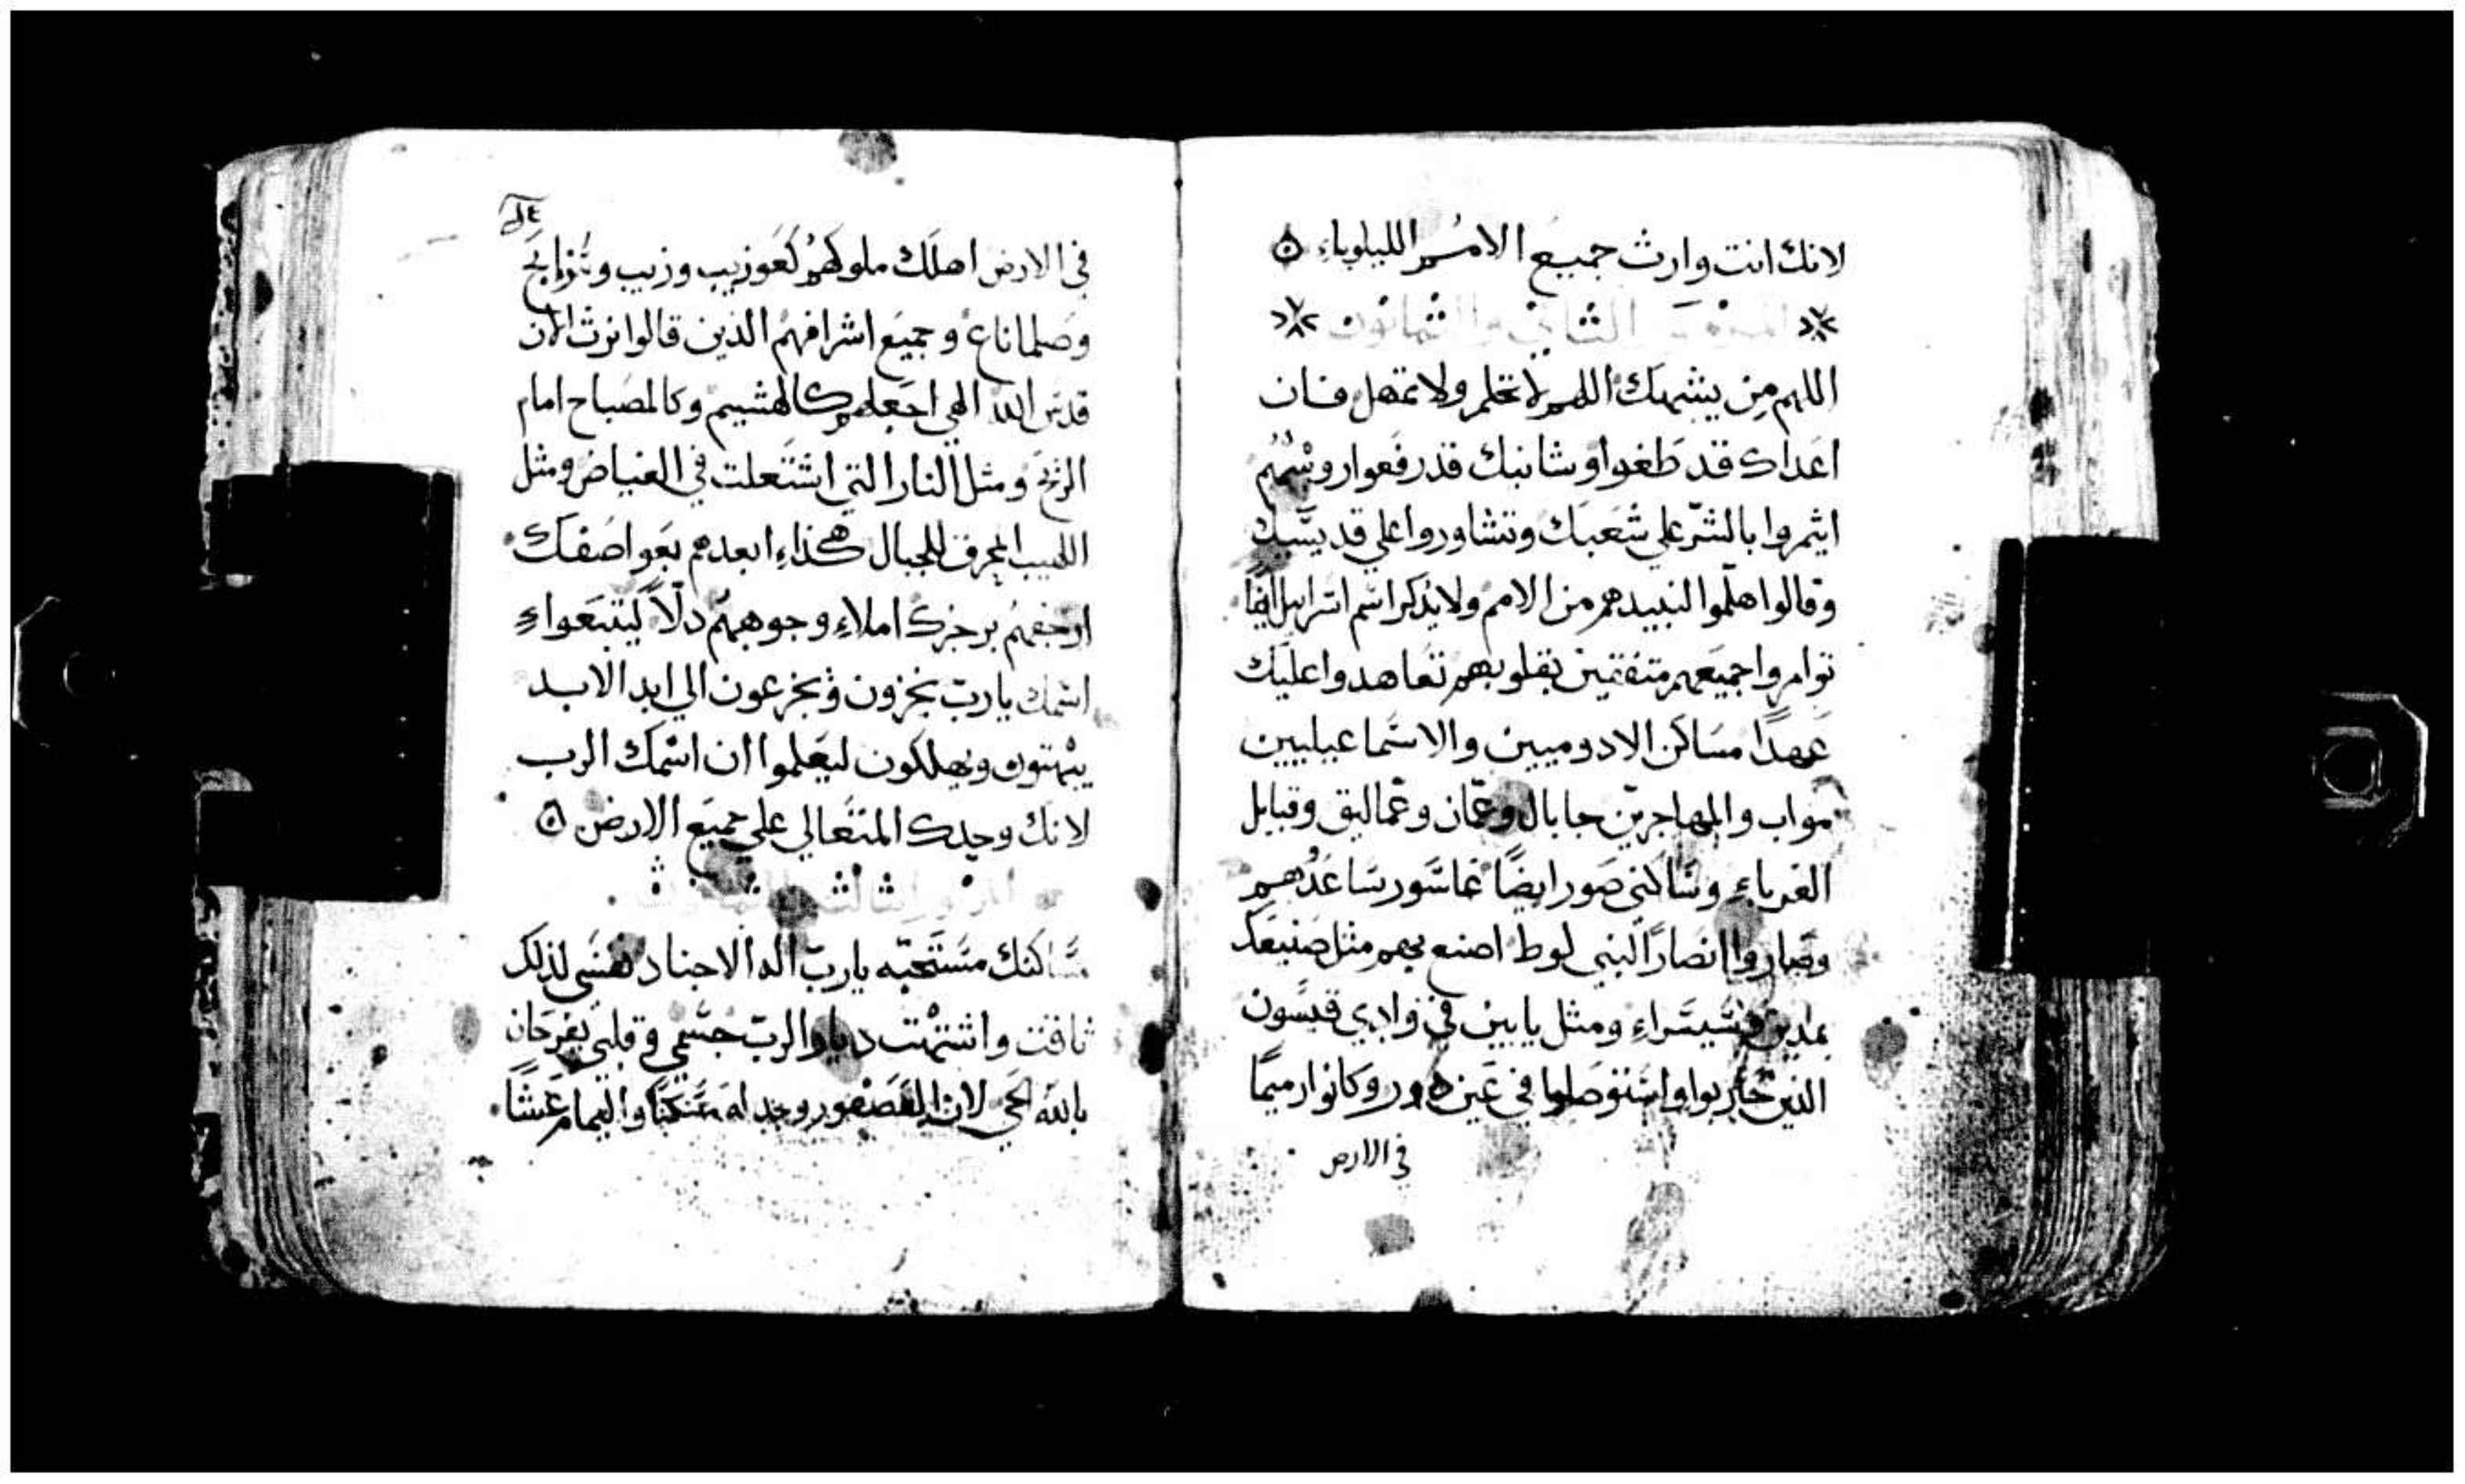 لانك انت وارث جميع الامم الليلوياء
المزمور الثاني والثمانون
اللهم من يشبهك اللهم لا تحلم ولا تمهل فان
اعداك قد طغوا وشانيك قد رفعوا روسهم
ايتمروا بالشر علي شعبك وتشاوروا علي قديسيك
وقالوا هلموا لنبيدهم من الامم ولا يذكر اسم اسرايل ايضًا
توامروا جميعهم متفقين بقلوبهم تعاهدوا عليك
عهدًا مساكن الادوميين والاسماعيليين
مواب والمهاجرين جابال وعمان وعماليق وقبايل
الغرباء وساكني صور ايضًا غاسور ساعدهم
وصاروا انصارًا لبني لوط اصنع بهم مثل صنيعك
بمدين وسيسراء ومثل يابين في وادي قيسون
الذين حاربوا واستوصلوا في عين دور وكانوا رميمًا
في الارض
في الارض اهلك ملوكهم كعوزيب وزيب و
وصلماناع وجميع اشرافهم الذين قالوا نرث الان
قدس الله الهي اجعلهم كالهشيم وكالمصباح امام
الريح ومثل النار التي اشتعلت في الغياض ومثل
اللهيب المحرق للجبال هكذاء ابعدهم بعواصفك
ارجفهم برجزك املاء وجوههم ذلًا ليتبعواء
اسمك يارب يخزون ويجزعون الي ابد الابد
يبهتون ويهلكون ليعلموا ان اسمك الرب
لانك وحدك المتعالي علي جميع الارض
المزمور الثالث والثمانون
مساكنك مستحبه يارب اله الاجناد نفسي لذلك
تاقت واشتهت ديار الرب جسمي وقلبي يفرحان
بالله الحي لان العصفور وجد له مسكنًا واليمام عشًا